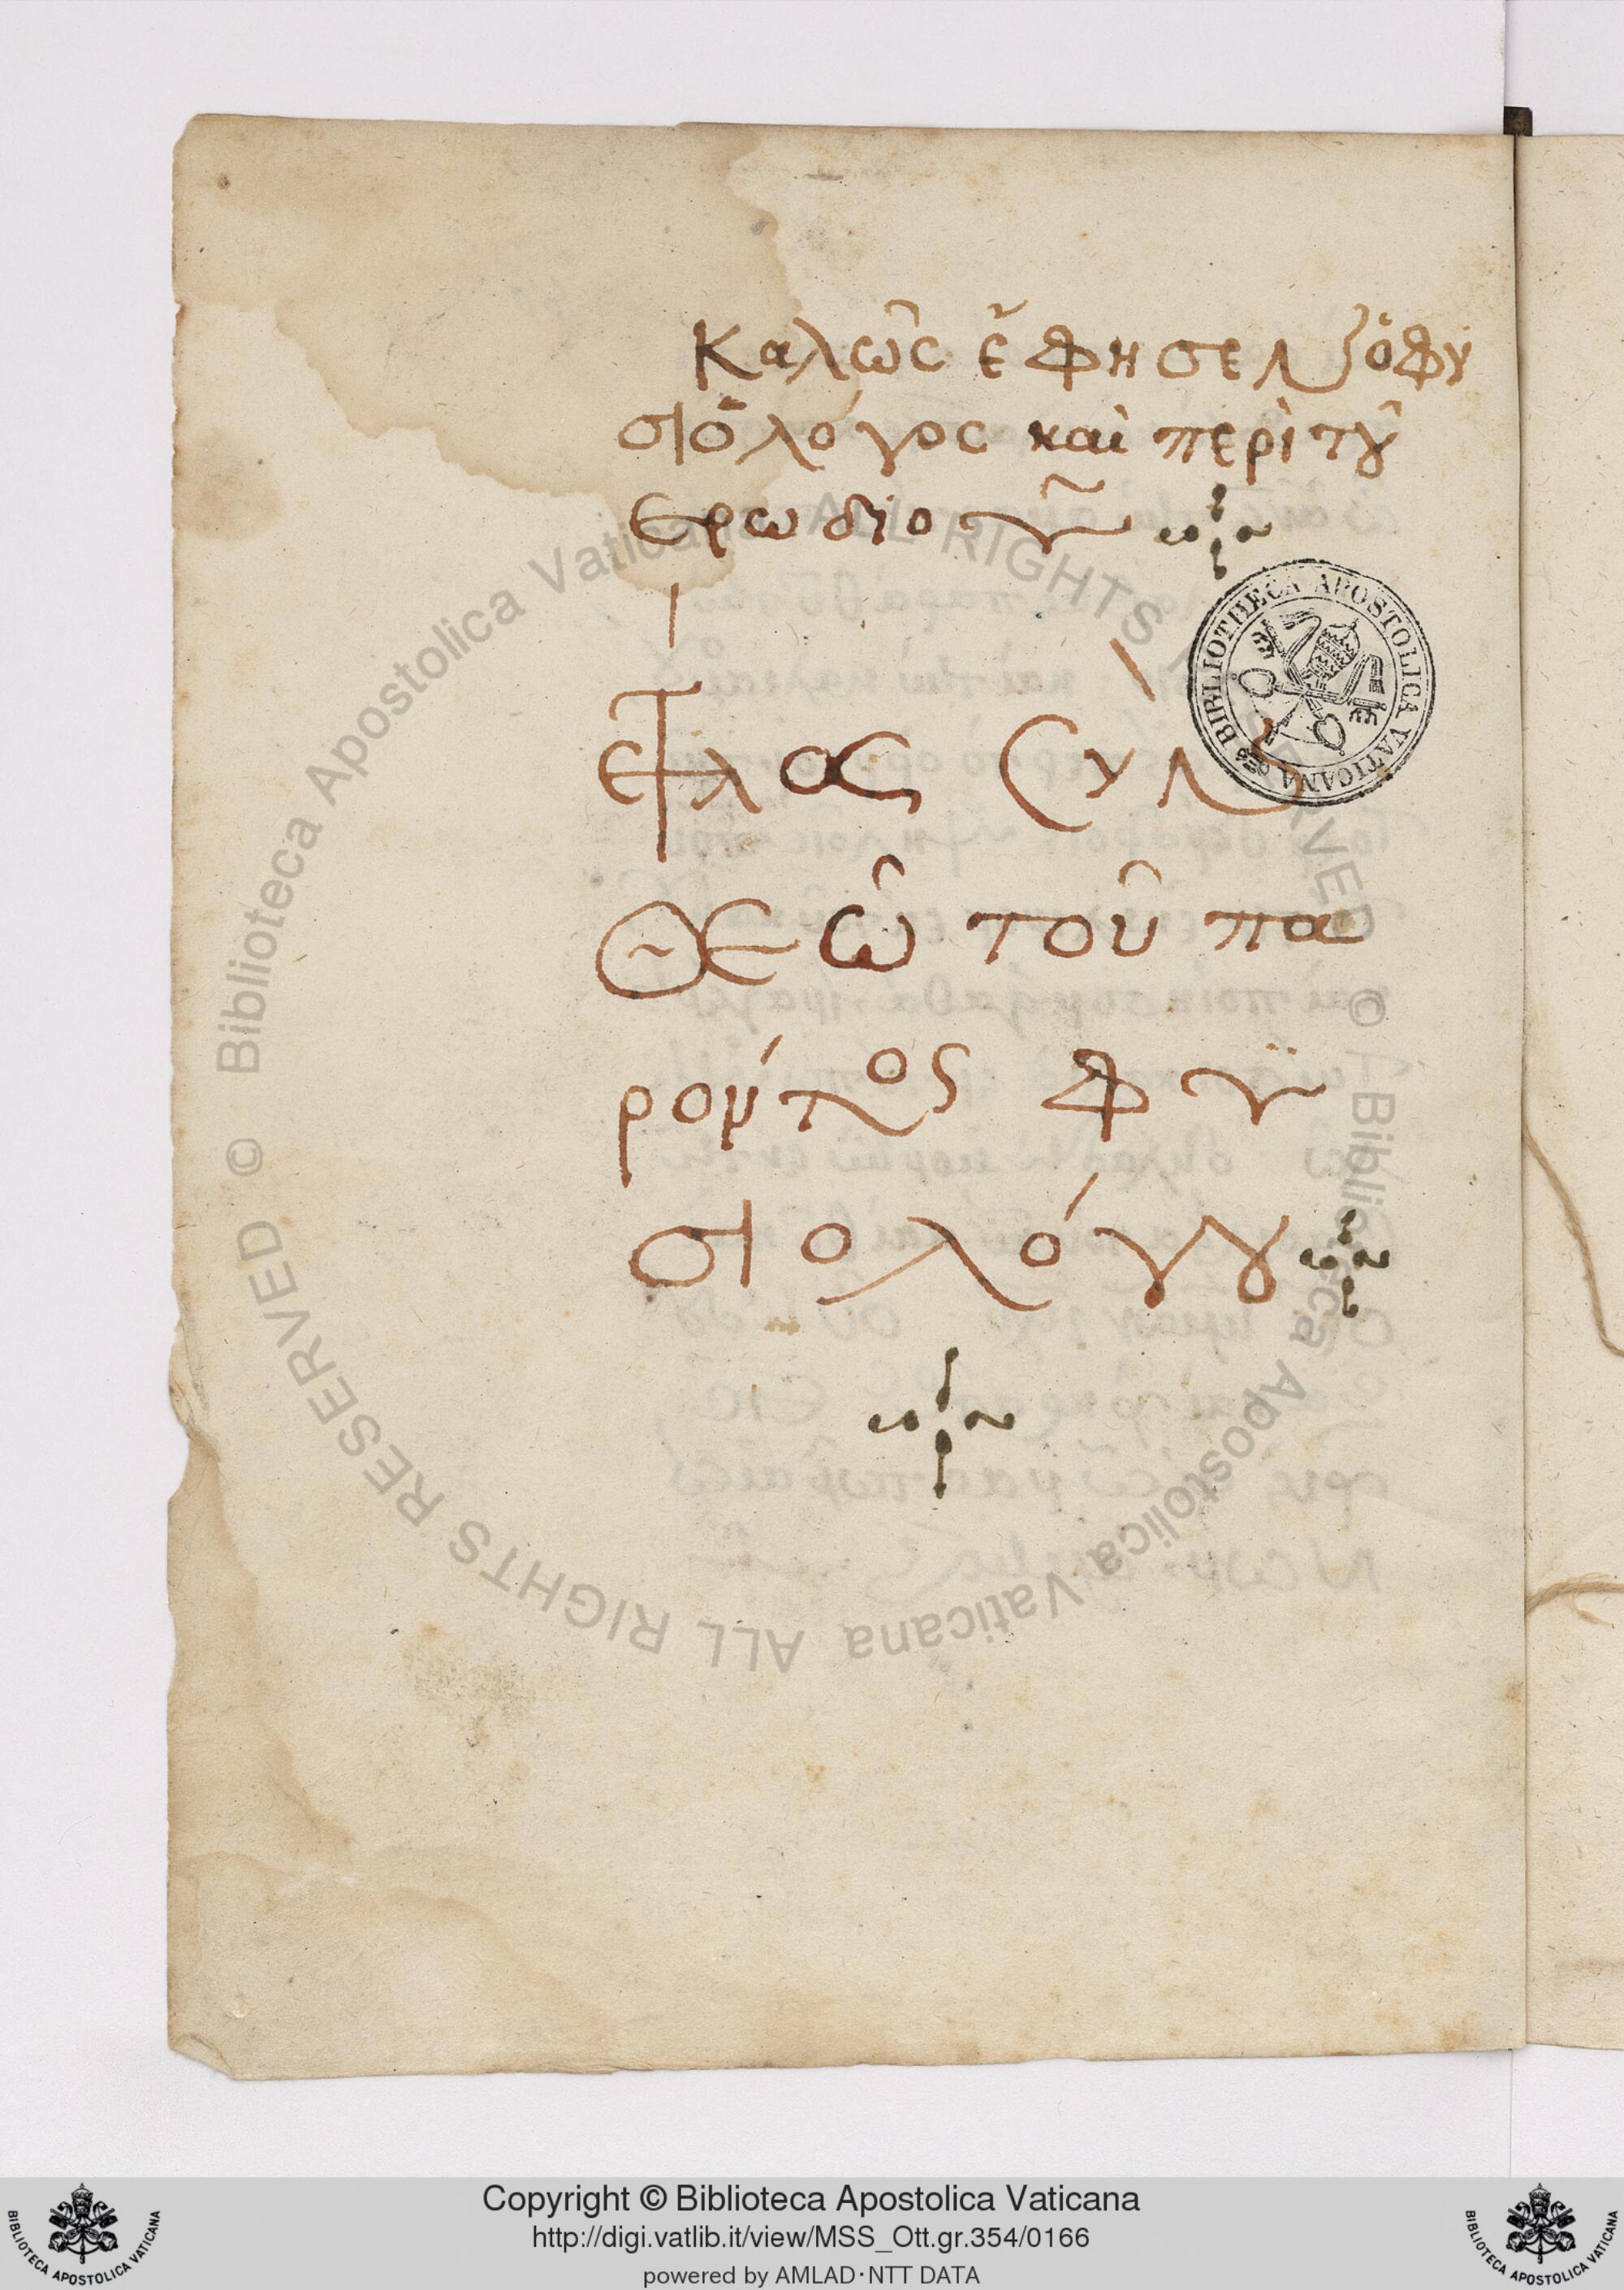 Καλῶς ἔφησεν ὁ φυ
σιολόγος καὶ περὶ τοῦ
ερωδιοῦ
τέλος σὺν
Θεῶ τοῦ πα
ρόντος φυ
σιολόγου
BIBLIOTHECA APOSTOLICA VATICANA
© Biblioteca Apostolica Vaticana ALL RIGHTS RESERVED
© Biblioteca Apostolica Vaticana ALL RIGHTS RESERVED
Copyright © Biblioteca Apostolica Vaticana
http://digi.vatlib.it/view/MSS_Ott.gr.354/0166
powered by AMLAD·NTT DATA
BIBLIOTECA APOSTOLICA VATICANA
BIBLIOTECA APOSTOLICA VATICANA